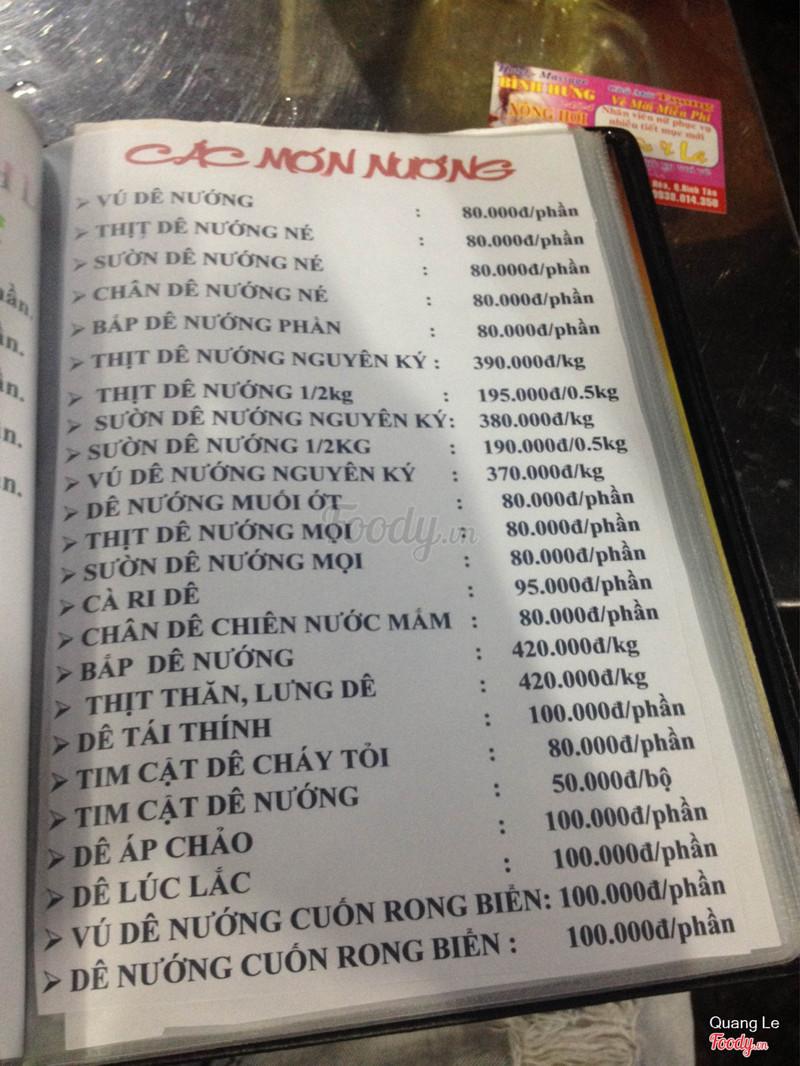 CÁC MÓN NƯỚNG
➢ VÚ DÊ NƯỚNG : 80.000đ/phần
➢ THỊT DÊ NƯỚNG NÉ : 80.000đ/phần
➢ SƯỜN DÊ NƯỚNG NÉ : 80.000đ/phần
➢ CHÂN DÊ NƯỚNG NÉ : 80.000đ/phần
➢ BẮP DÊ NƯỚNG PHẦN : 80.000đ/phần
➢ THỊT DÊ NƯỚNG NGUYÊN KÝ : 390.000đ/kg
➢ THỊT DÊ NƯỚNG 1/2kg : 195.000đ/0.5kg
➢ SƯỜN DÊ NƯỚNG NGUYÊN KÝ: 380.000đ/kg
➢ SƯỜN DÊ NƯỚNG 1/2KG : 190.000đ/0.5kg
➢ VÚ DÊ NƯỚNG NGUYÊN KÝ : 370.000đ/kg
➢ DÊ NƯỚNG MUỐI ỚT : 80.000đ/phần
➢ THỊT DÊ NƯỚNG MỌI : 80.000đ/phần
➢ SƯỜN DÊ NƯỚNG MỌI : 80.000đ/phần
➢ CÀ RI DÊ : 95.000đ/phần
➢ CHÂN DÊ CHIÊN NƯỚC MẮM : 80.000đ/phần
➢ BẮP DÊ NƯỚNG : 420.000đ/kg
➢ THỊT THĂN, LƯNG DÊ : 420.000đ/kg
➢ DÊ TÁI THÍNH : 100.000đ/phần
➢ TIM CẬT DÊ CHÁY TỎI : 80.000đ/phần
➢ TIM CẬT DÊ NƯỚNG : 50.000đ/bộ
➢ DÊ ÁP CHẢO : 100.000đ/phần
➢ DÊ LÚC LẮC : 100.000đ/phần
➢ VÚ DÊ NƯỚNG CUỐN RONG BIỂN: 100.000đ/phần
➢ DÊ NƯỚNG CUỐN RONG BIỂN : 100.000đ/phần
Massage
BÌNH HƯNG
XÔNG HƠI
Vé Mời Miễn Phí
Nhân viên nữ phục vụ
nhiều tiết mục mới
Q.Bình Tân
0938.014.350
Foody.vn
Quang Le
Foody.vn